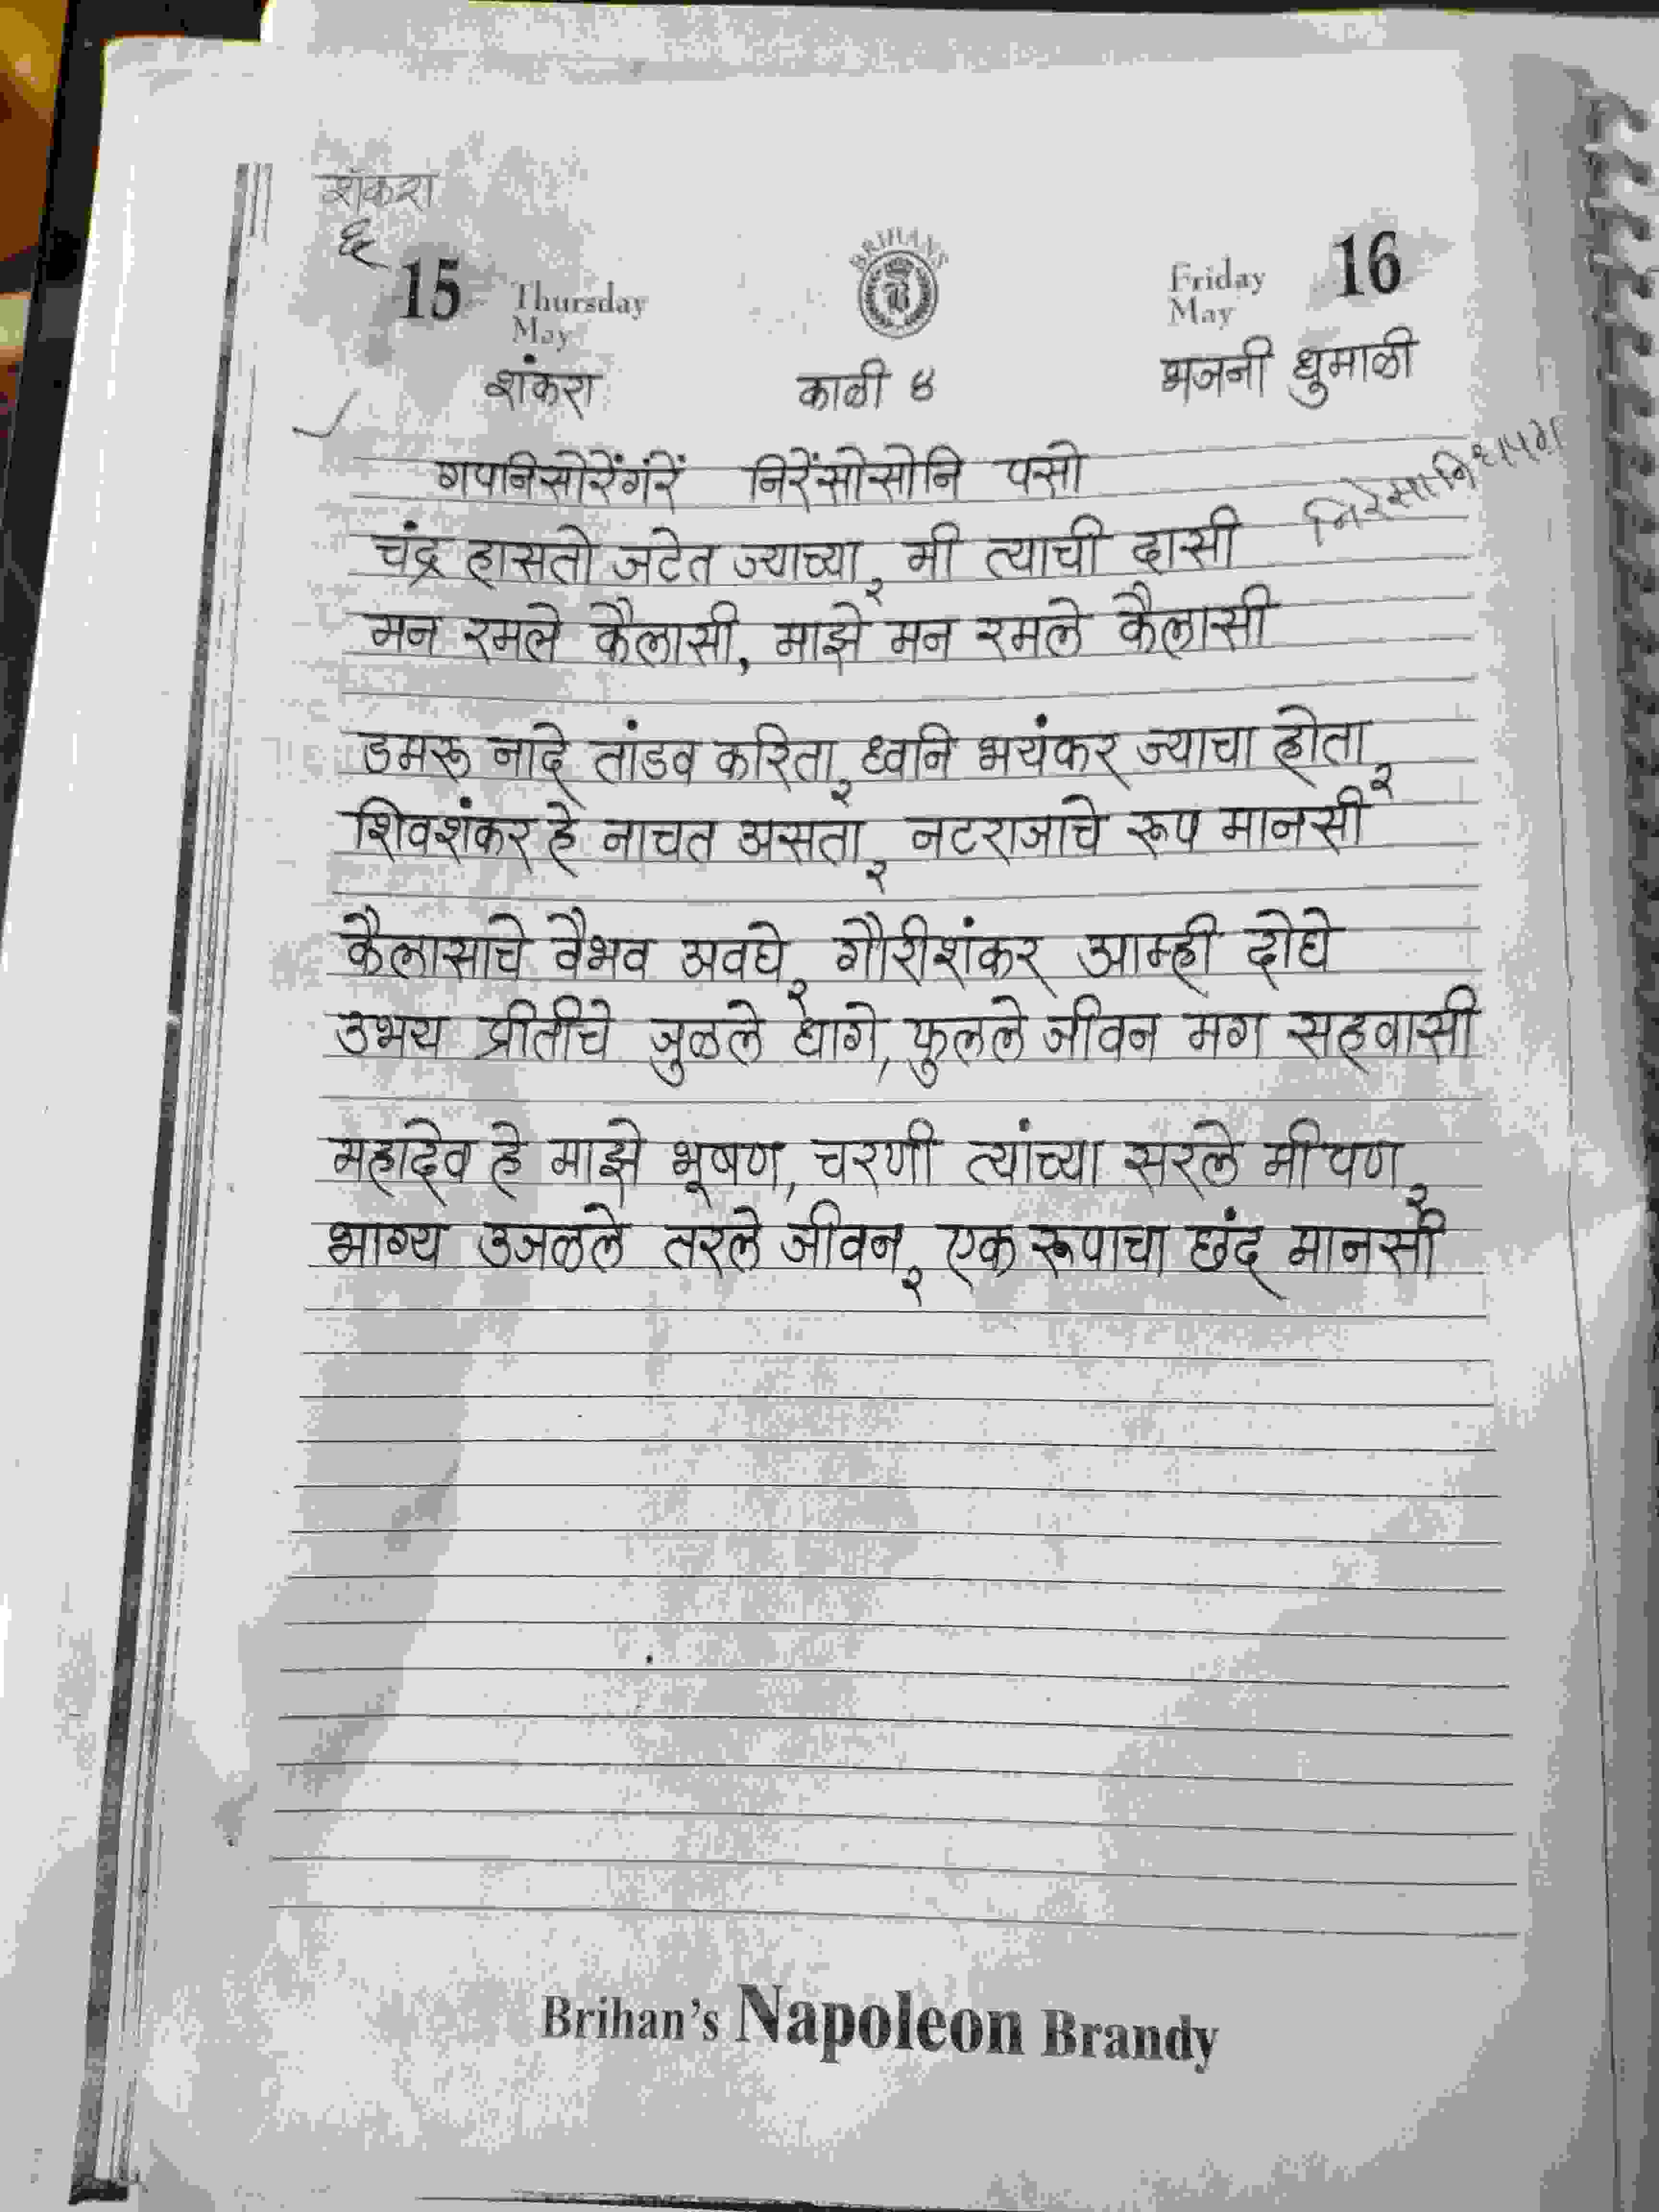 शंकरा
६
BRIHAN'S
15 Thursday May
Friday May 16
शंकरा काळी ४ भजनी धुमाळी
गपनिसोरेंगंरें निरेंसोसोनि पसो
निरेसानिधपग
चंद्र हासतो जटेत ज्याच्या२ मी त्याची दासी
मन रमले कैलासी, माझे मन रमले कैलासी
डमरू नादे तांडव करिता२ ध्वनि भयंकर ज्याचा होता२
शिवशंकर हे नाचत असता२ नटराजाचे रूप मानसी
कैलासाचे वैभव अवघे२ गौरीशंकर आम्ही दोघे
उभय प्रीतीचे जुळले धागे, फुलले जीवन मग सहवासी
महादेव हे माझे भूषण, चरणी त्यांच्या सरले मीपण२
भाग्य उजळले तरले जीवन२ एक रूपाचा छंद मानसी
Brihan's Napoleon Brandy